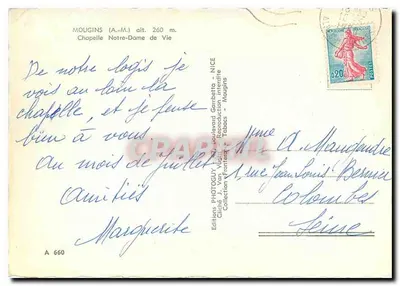 MOUGINS (A.-M.) alt. 260 m.
Chapelle Notre-Dame de Vie
0,20
De notre logis je
vois au loin la
chapelle, et je pense
bien à vous.
Au mois de juillet
Amitiés
Marguerite
A 660
Editions PHOTOGUY, boulevard Gambetta - NICE
Cliché J. Van Reproduction interdite
Collection Tabacs - Mougins
Mme A. Maujendre
1 rue Jean Louis Bernier
Colombes
Seine